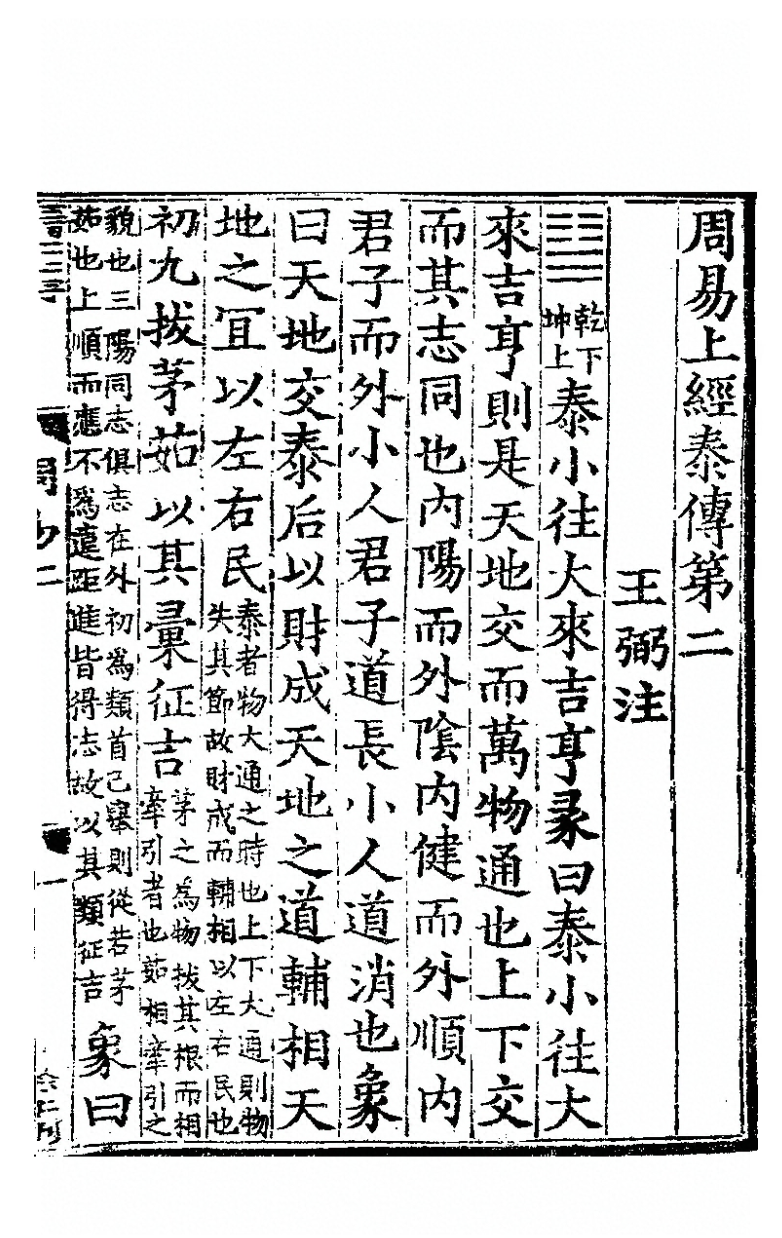 周易上經泰傳第二
王弼注
䷊乾下坤上泰小往大來吉亨彖曰泰小往大
來吉亨則是天地交而萬物通也上下交
而其志同也内陽而外陰内健而外順内
君子而外小人君子道長小人道消也象
曰天地交泰后以財成天地之道輔相天
地之冝以左右民泰者物大通之時也上下大通則物失其節故財成而輔相以左右民也
初九拔茅茹以其彙征吉茅之為物拔其根而相牽引者也茹相牽引之
貌也三陽同志俱志在外初為類首己舉則從若茅茹也上順而應不為違距進皆得志故以其類征吉象曰